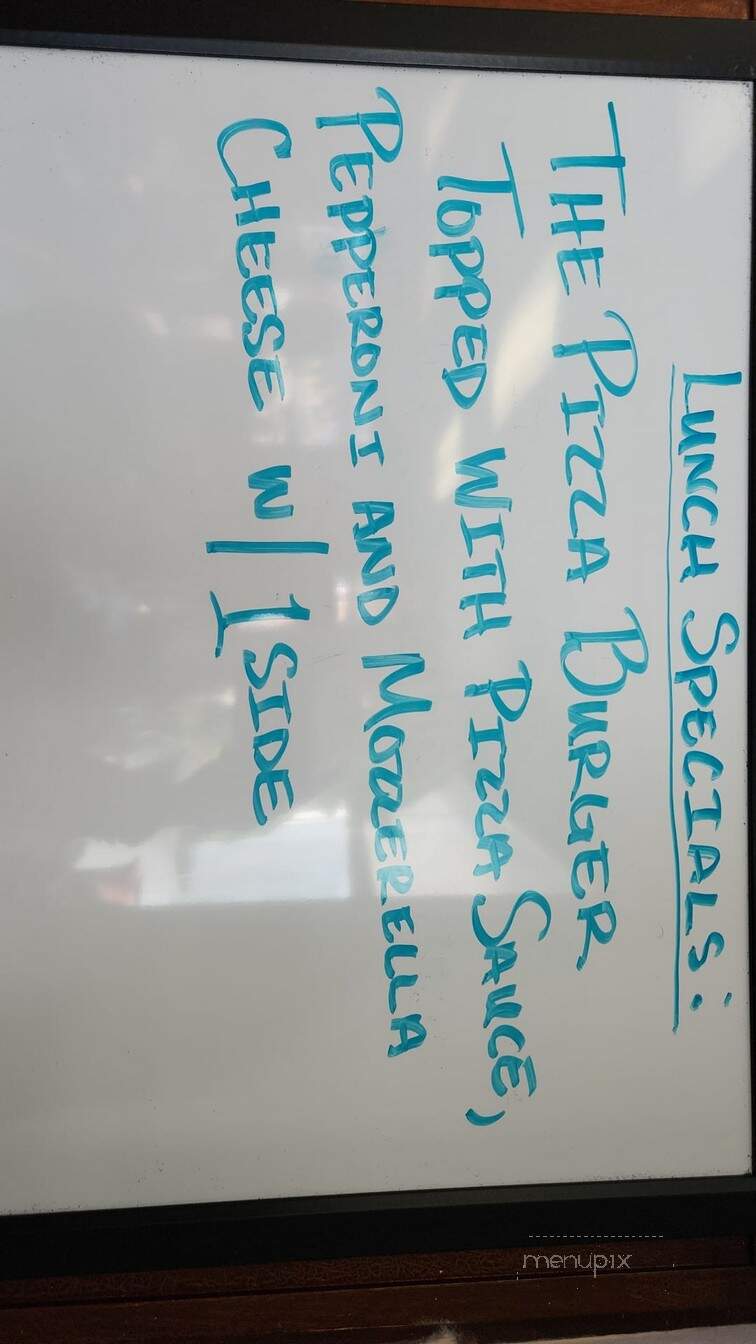 LUNCH SPECIALS:
THE PIZZA BURGER
TOPPED WITH PIZZA SAUCE,
PEPPERONI AND MOZZERELLA
CHEESE W/ 1 SIDE
menupix